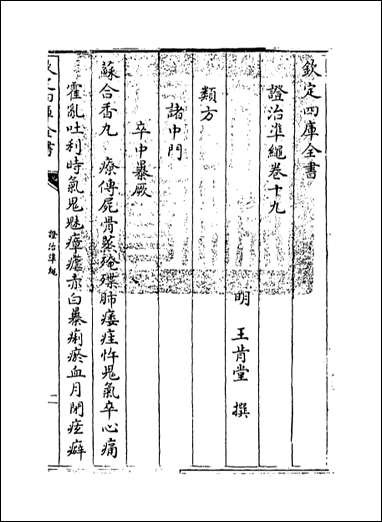 欽定四庫全書
證治準繩卷十九
明 王肯堂 撰
類方
諸中門
卒中暴厥
蘇合香丸 療傳屍骨蒸殗殜肺痿疰忤鬼氣卒心痛
霍亂吐利時氣鬼魅瘴瘧赤白暴痢瘀血月閉痃癖
欽定四庫全書
證治準繩